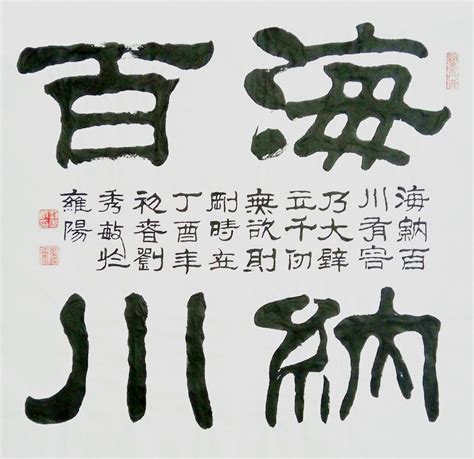 海納
百川
海納百
川有容
乃大壁
立千仞
無欲則
剛時在
丁酉年
初春劉
秀敏於
雍陽